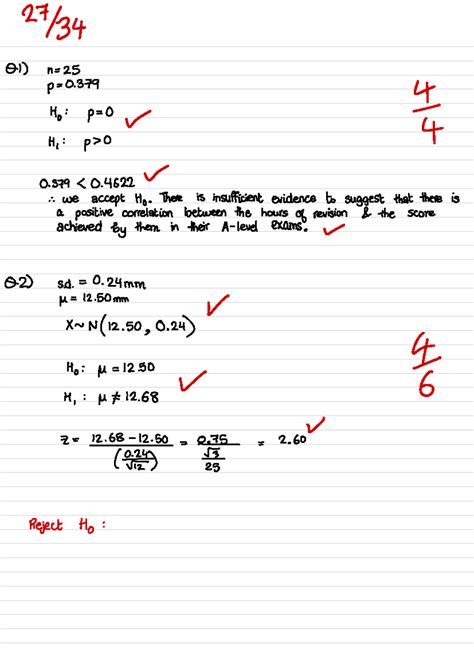 27/34
Q1) n=25
p=0.379
4/4
H₀: p=0
H₁: p>0
0.379 < 0.4622
∴ we accept H₀. There is insufficient evidence to suggest that there is
a positive correlation between the hours of revision & the score
achieved by them in their A-level exams.
Q2) sd. = 0.24mm
μ = 12.50mm
X~N(12.50, 0.24)
4/6
H₀: μ = 12.50
H₁: μ ≠ 12.68
Z = 12.68 - 12.50 / (0.24/√12) = 0.75 / √3/25 = 2.60
Reject H₀: